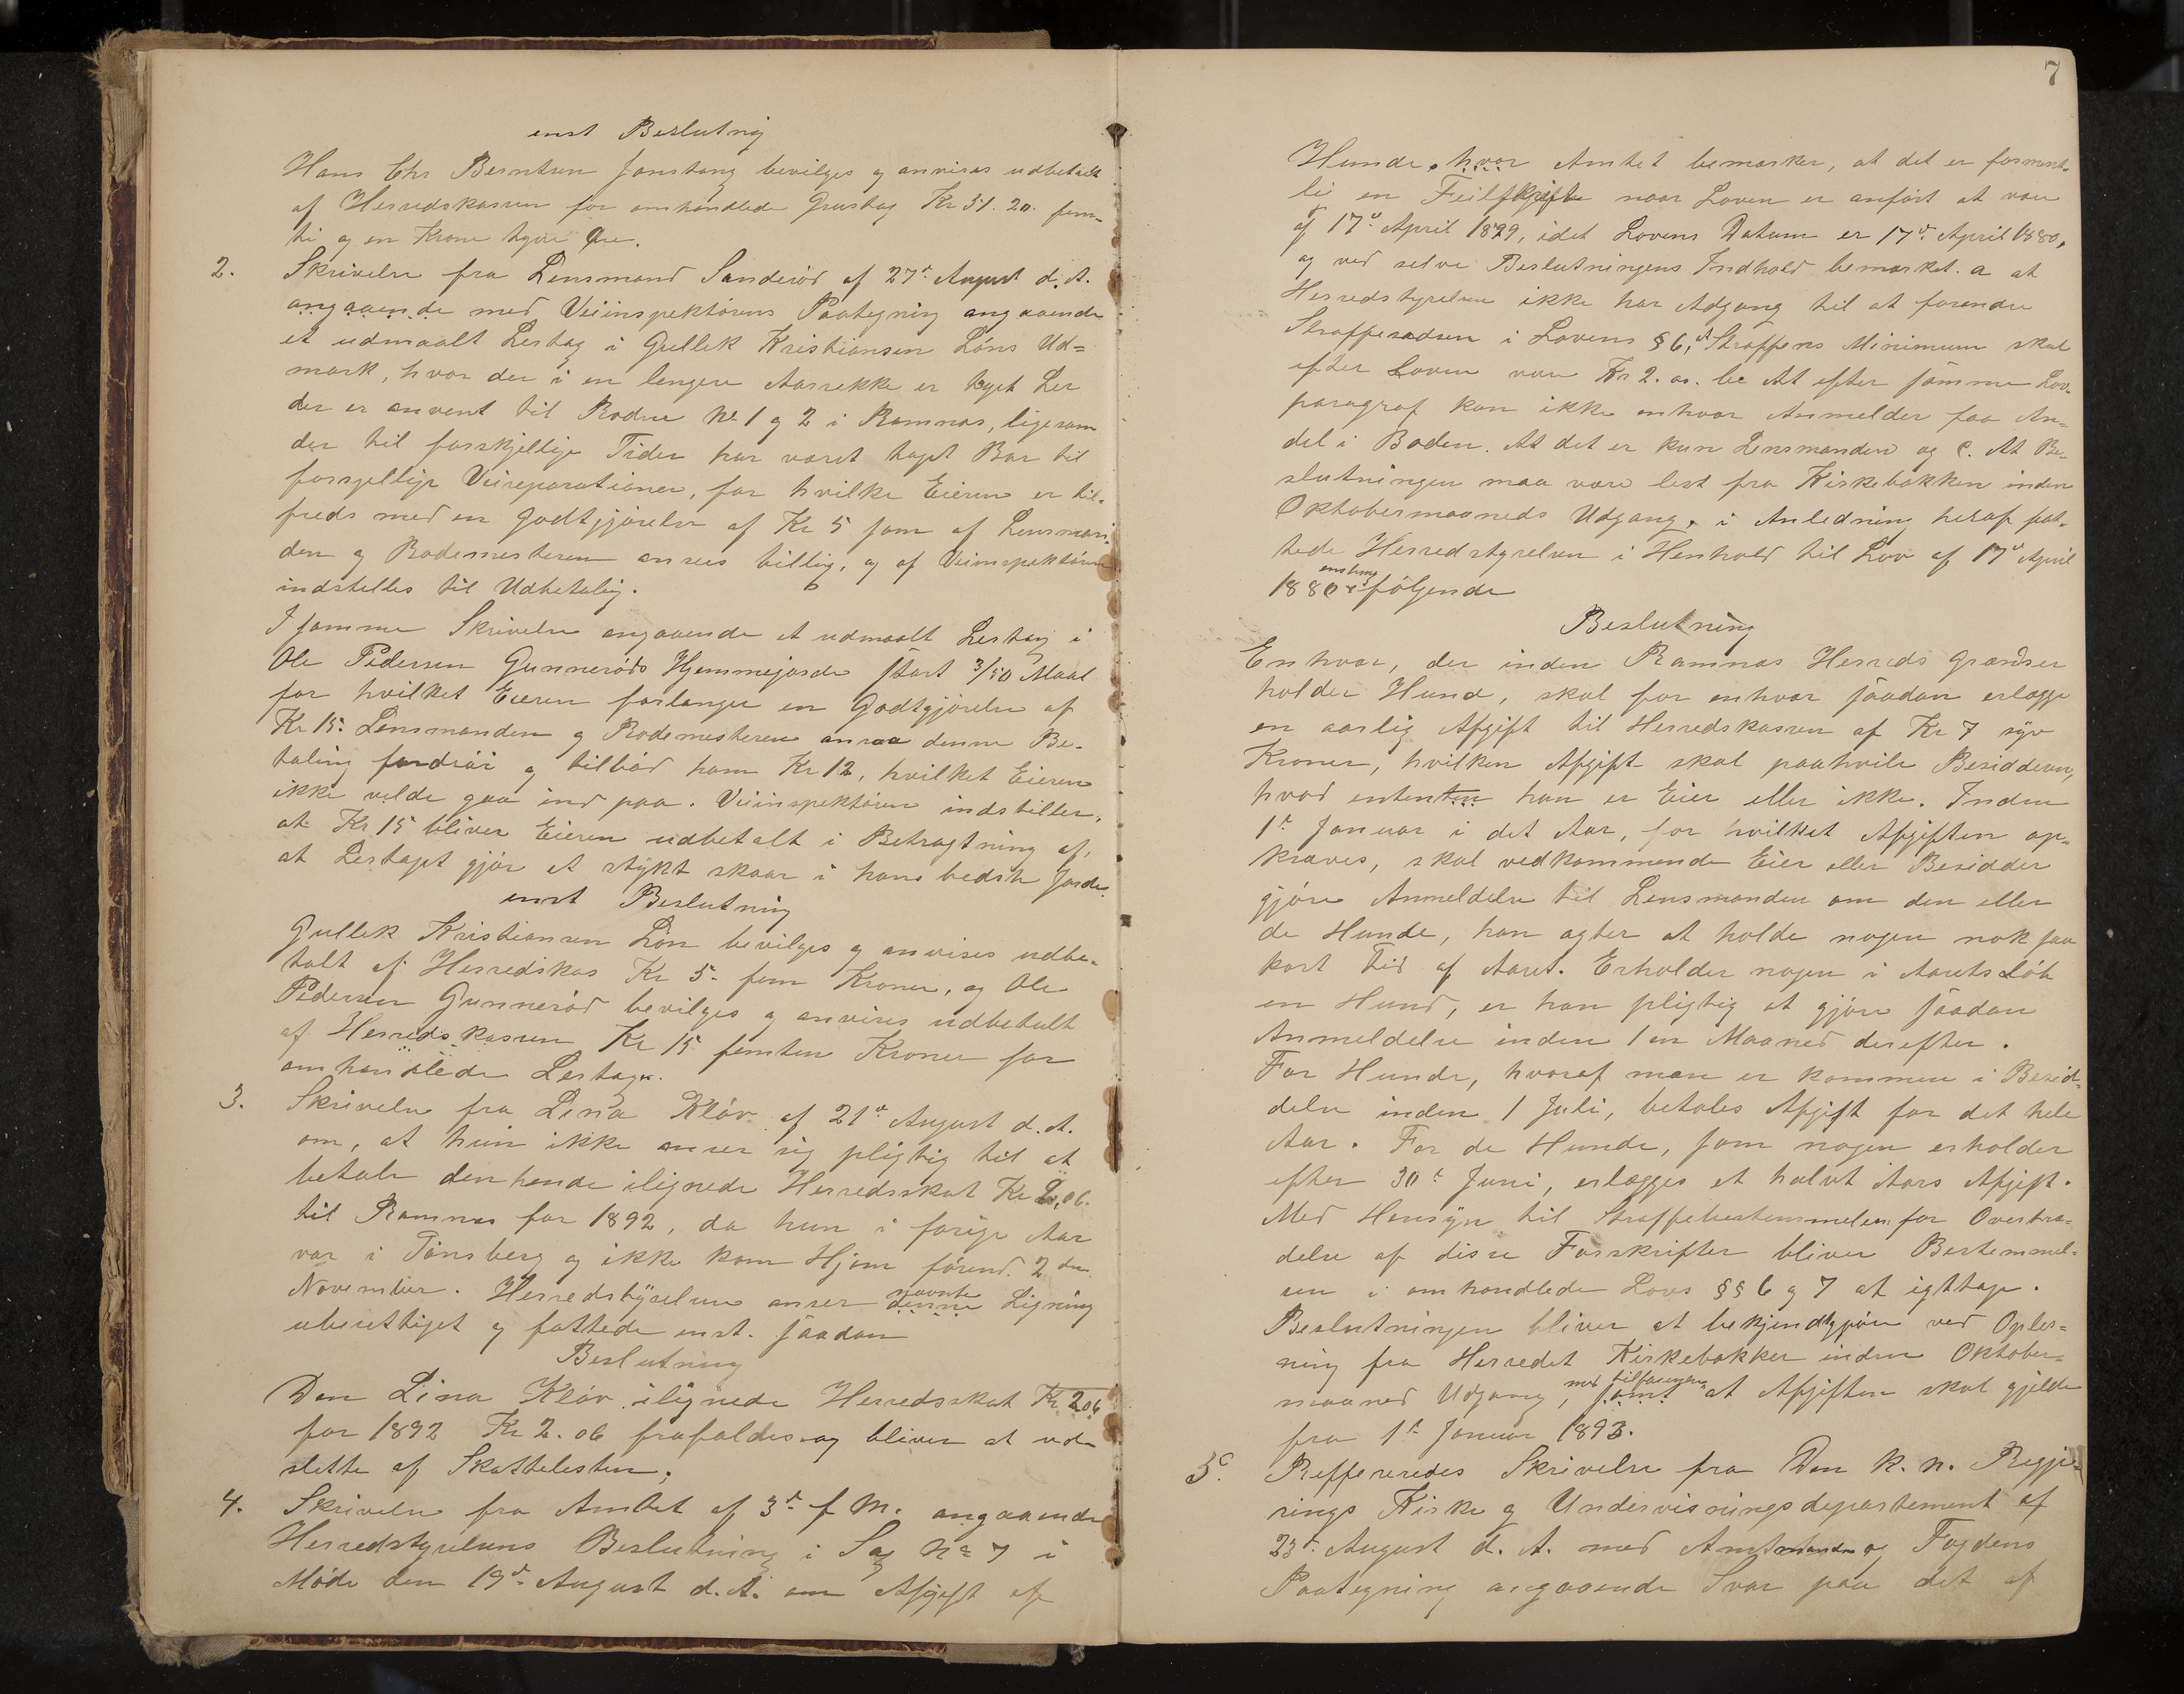 enst Beslutnig
Hans Chr Berntsen Jonstang bevilges og anvises udbetalt
af Herredskassen for omhandlede Grustag Kr 51.20. fem-
ti og en Krone tyve Øre.
2. Skrivelse fra Lensmand Sanderöd af 27de August d. A.
angaaende med Veiinspektörens Paategning angaaende
et udmaalt Lertag i Gullek Kristiansen Löns Ud=
mark, hvor der i en lengere Aarrekke er taget Ler
der er anvent til Rodne No 1 og 2 i Ramnas, ligesom
der til forskjellige Tider har varet taget Bar til
forsjellige Veireparationer, for hvilke Eieren er til-
freds med en Godtgjörelse af Kr 5 som af Lensman-
den og Rodemesteren ansees billig, og af Veiinspektören
indstilles til Udbetalig.
I samme Skrivelse angaaende et udmaalt Lertag i
Ole Pedersen Gunneröds Hjemmejorde stort 3/50 Maal
for hvilket Eieren forlanger en Godtgjörelse af
Kr 15. Lensmanden og Rodemesteren ansaa denne Be-
taling for dröi og tilböd ham Kr 12, hvilket Eieren
ikke vilde gaa ind paa. Veiinspektören indstiller,
at Kr 15 bliver Eieren udbetalt i Betragtning af,
at Lertaget gjör et stykt skaar i hans bedste Jorde.
enst Beslutning
Gullek Kristiansen Lön bevilges og anvises udbe-
talt af Herredskas Kr 5- fem Kroner, og Ole
Pedersen Gunneröd bevilges og anvises udbetalt
af Herredskassen Kr 15 femten Kroner for
omhandlede Lertag.
3. Skrivelse fra Lina Klöv af 21de August d. A.
om, at hun ikke anser sig pligtig til at
betale den hende ilignede Herredsskat Kr 2,06.
til Ramnas for 1892, da hun i forige Aar
var i Tönsberg og ikke kom Hjem förend 2den
November. Herredstyrelsen anser denne navnte Ligning
uberettiget og fattede enst. saadan
Beslutning
Den Lina Klöv ilignede Herredsskat Kr 206
for 1892 Kr 2.06 frafaldes og bliver at ud-
slette af Skattelesten.
4. Skrivelse fra Amtet af 3de f M. angaaende
Herredstyrelsens Beslutning i Sag No 7 i
Möde den 19de August d. A. om Afgift af
7
Hunde, hvor Amtet bemarker, at det er forment-
lig en Feilskrift naar Loven er anfört at vare
af 17de April 1899, idet Lovens Datum er 17de April 1880,
og ved selve Beslutningens Indhold bemarket. a at
Herredstyrelsen ikke har Adgang til at forandre
Straffesadsen i Lovens § 6, at Straffens Minimum skal
efter Loven vare Kr 2. oo. be At efter samme Lov-
paragraf kan ikke enhver Anmelder faa An-
del i Boden. At det er kun Lensmanden og c. At Be-
slutningen maa vare lest fra Kirkebakken inden
Oktobermaaneds Udgang, i Anledning heraf fat-
tede Herredstyrelsen i Henhold til Lov af 17de April
1880 enstemig fölgende
Beslutning
Enhver, der inden Ramnas Herreds Grandser
holder Hund, skal for enhver saadan erlagge
en aarlig Afgift til Herredskassen af Kr 7 syv
Kroner, hvilken Afgift skal paahvile Besidderen,
hvad enten han er Eier eller ikke. Inden
1de Januar i det Aar, for hvilket Afgiften op-
kraves, skal vedkommende Eier eller Besidder
gjöre Anmeldelse til Lensmanden om den eller
de Hunde, han agter at holde nogen nok saa
kort Tid af Aaret. Erholder nogen i Aarets Löb
en Hund, er han pligtig at gjöre saadan
Anmeldelse inden 1 en Maaned derefter.
For Hunde, hvoraf man er kommen i Besid-
delse inden 1 Juli, betales Afgift for det hele
Aar. For de Hunde, som nogen erholder
efter 30de Juni, erlagges et halvt Aars Afgift.
Med Hensyn til Straffebestemmelsen for Overtra-
delse af disse Forskrifter bliver Bestemmel-
sen i omhandlede Lovs §§ 6 og 7 at igttage.
Beslutningen bliver at bekjendtgjöre ved Oples-
ning fra Herredet Kirkebakker inden Oktober-
maaned Udgang, samt med tilföiende at Afgiften skal gjelde
fra 1de Januar 1893.
5. Reffereredes Skrivelse fra Den k. n. Regje-
rings Kirke og Undervisningsdepartement af
23de August d. A. med Amtmanden og Fogdens
Paategning angaaende Svar paa det af